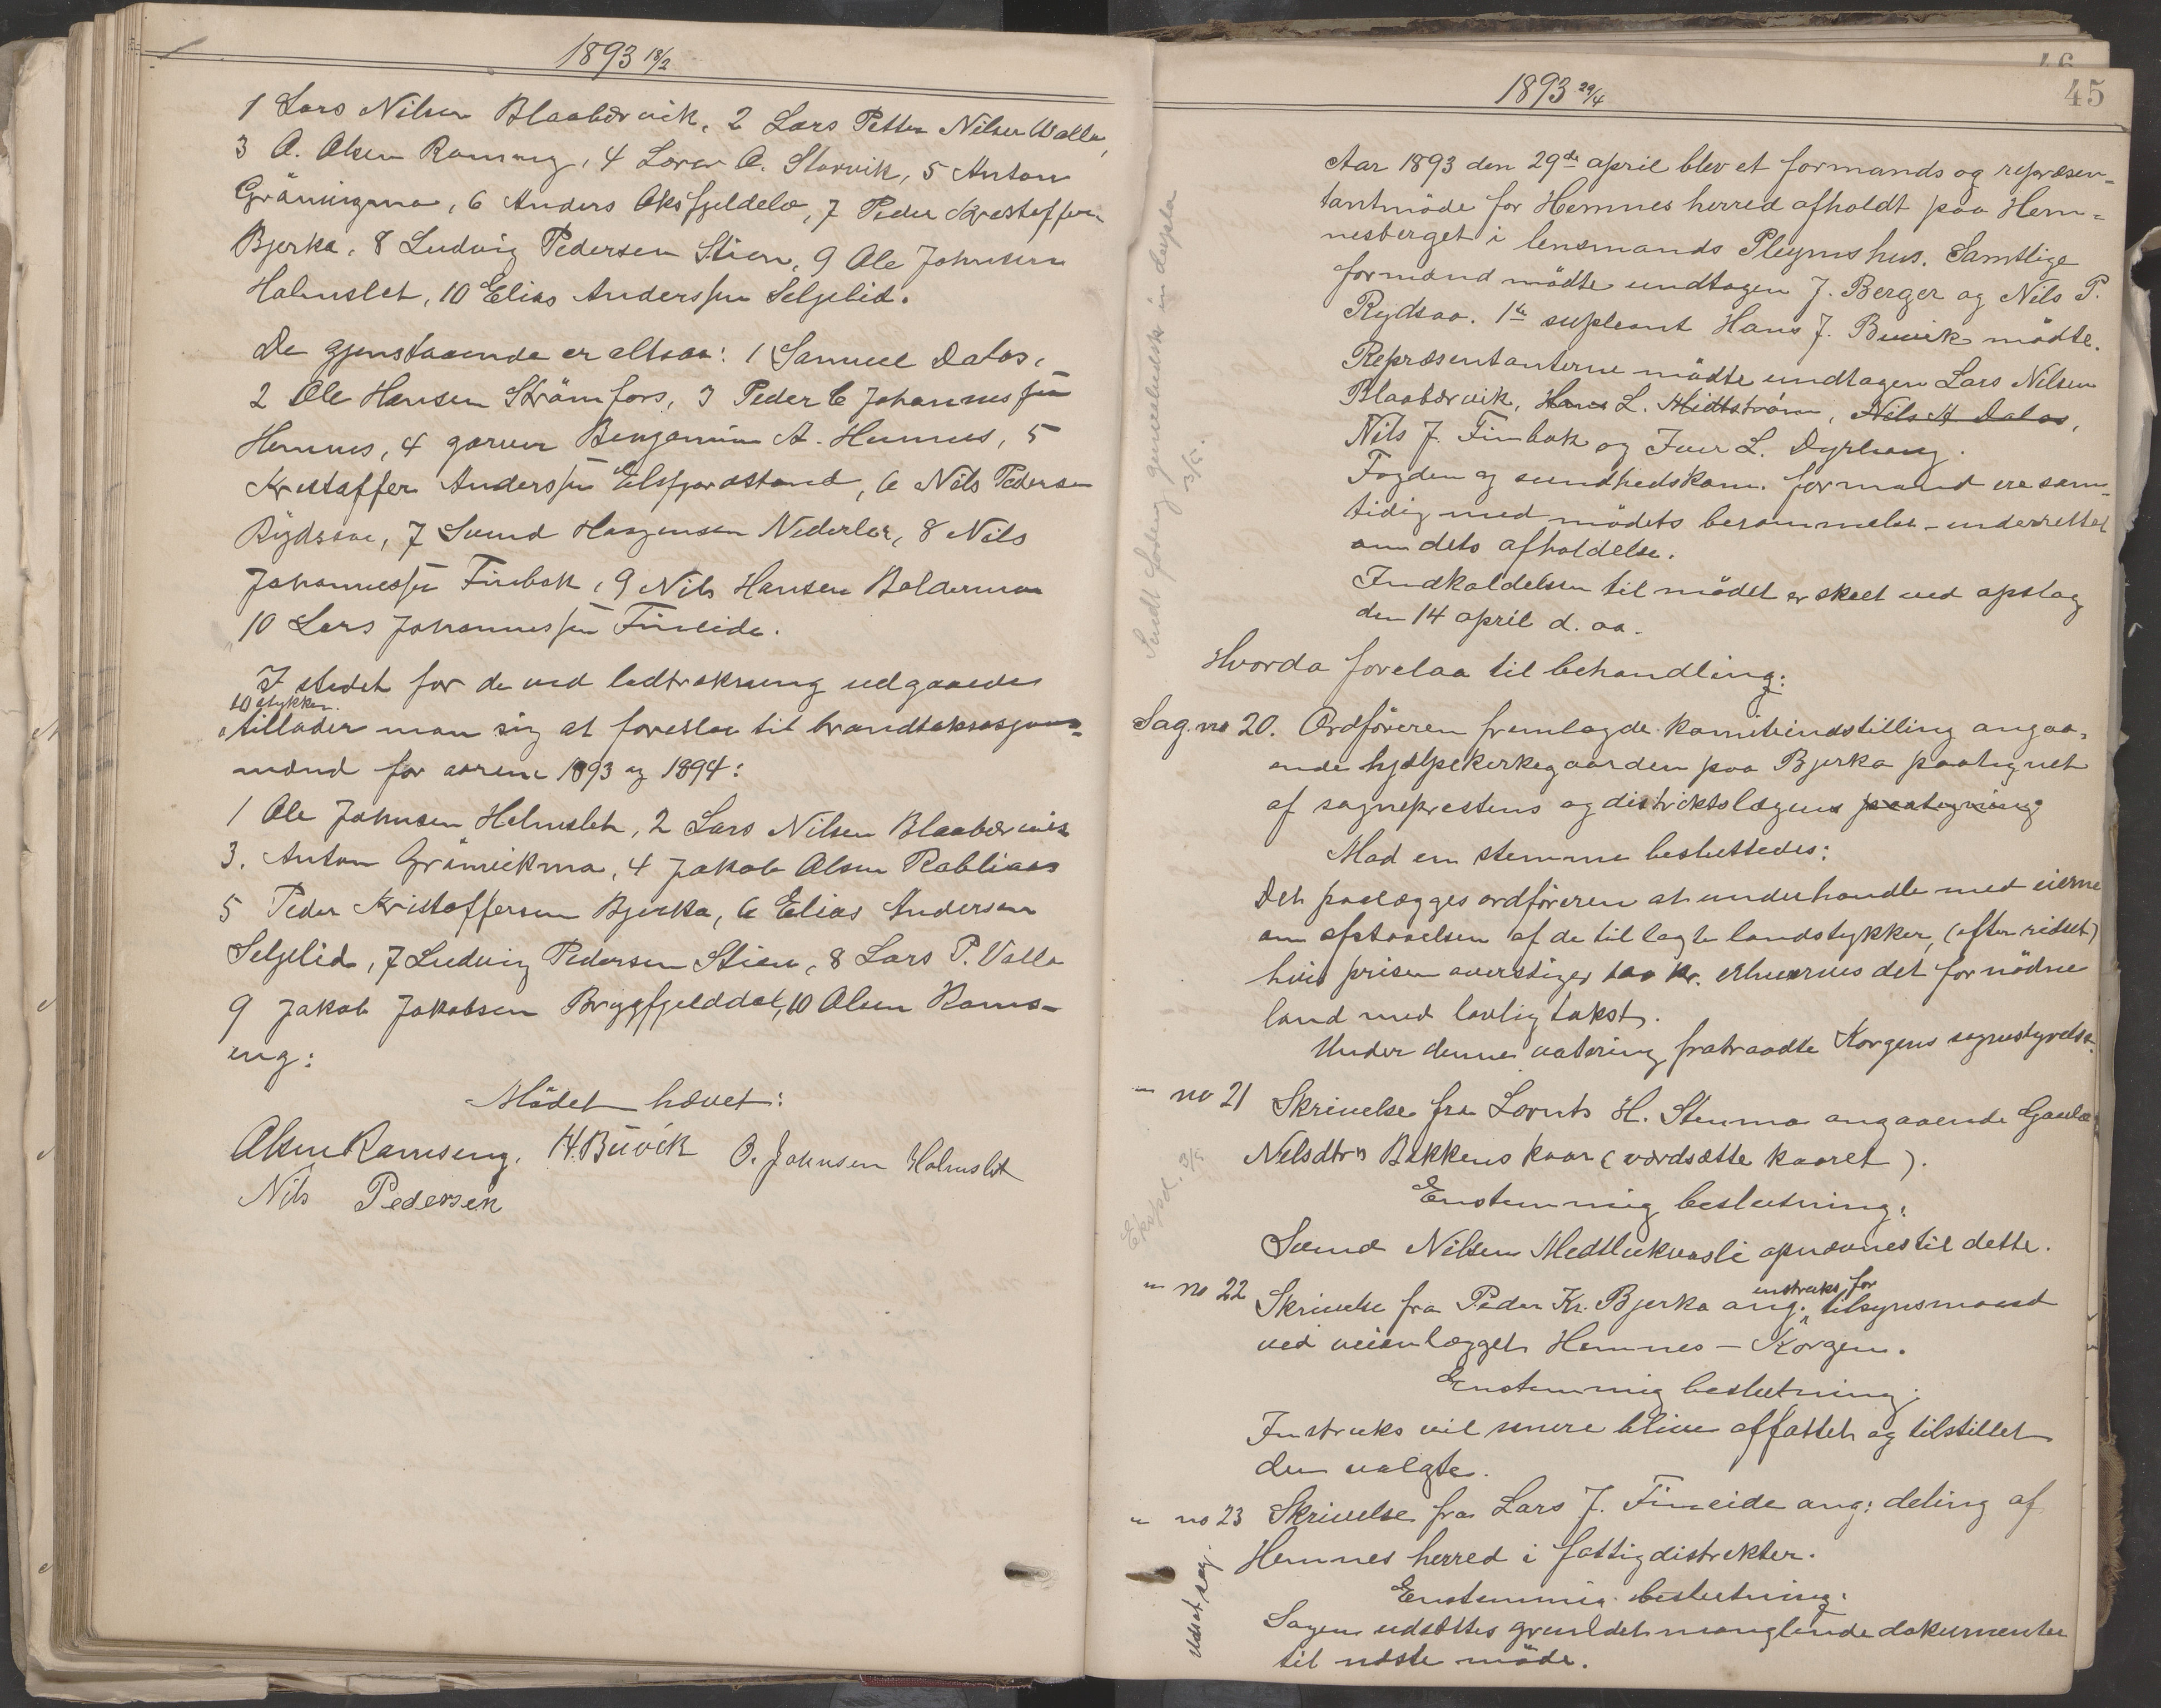 1893 18/2
1 Lars Nilsen Blaabærvik, 2 Lars Petter Nilsen Walla,
3 A. Olsen Ramseng, 4 Lorns A. Storvik, 5 Anton
Gräneigma, 6 Anders Oksfjeldelv, 7 Peder Kristoffersen
Bjerka, 8 Ludvig Pedersen Stien, 9 Ole Johnsen
Holmslet, 10 Elias Anderssen Seljelid.
De gjenstaaende er altsaa: 1 Samuel Dalos,
2 Ole Hansen Strömfors, 3 Peder C Johannessen
Hemnes, 4 garver Benjamin A. Hemnes, 5
Kristoffer Anderssen Elsfjordstrand, 6 Nils Pedersen
Rydsaa, 7 Svend Haagensen Nederler, 8 Nils
Johannessen Finbak, 9 Nils Hansen Baldermo
10 Lars Johannessen Fineide.
I stedet for de ved lodtrekning udgaaede
10 stykker.
tillader man sig at foreslaa til brandtaksasjons=
mænd for aarene 1893 og 1894:
1 Ole Johnsen Holmslet, 2 Lars Nilsen Blaabærvik
3. Anton Gräneikma, 4 Jakob Olsen Rabliaas
5 Peder Kristoffersen Bjerka, 6 Elias Andersen
Seljelid, 7 Ludvig Pedersen Stien, 8 Lars P. Valla
9 Jakob Jakobsen Bryggfjelddal, 10 Olsen Rams-
eng:
Mödet hævet:
Olsen Ramseng. H. Buvik O. Johnsen Holmslet
Nils Pedersen
1893 29/4
45
Aar 1893 den 29de april blev et formands og repræsen=
tantmöde for Hemnes herred afholdt paa Hem=
nesberget i lensmands Pleyms hus. Samtlige
formænd mödte undtagen J. Berger og Nils P.
Rydsaa. 1ste supleant Hans J. Buvik mödte.
Repræsentanterne mödte undtagen Lars Nilsen
Blaabærvik, Hans L. Midtstrøm, Nils H Dalos,
Nils J. Finbak og Iver L. Dyrhaug.
Fogden og sundhedskom. formand ere sam=
tidig med mödets berammelse underrettet
om dets afholdelse.
Indkaldelsen til mödet er skeet ved opslag
den 14 april d. aa.
Hvorda forelaa til behandling:
Sag. no 20. Ordföreren fremlagde komiteindstilling angaa=
ende hjælpekirkegaarden paa Bjerka paategnet
af sogneprestens og distriktslægens paategning
Mod en stemme besluttedes:
Det paalægges ordföreren at underhandle med eierne
om afstaaelsen af de tillagte landstykker, (efter ridset)
hvis prisen overstiger 100 kr. erhverves det fornödne
land med lovlig takst.
Under denne votering fratraadte Korgens sognestyrelse.
" no 21 Skrivelse fra Lornts H. Stenmo angaaende
Nilsdtrs Bakkens kaar (værdsætte kaaret).
Enstemmig beslutning:
Svend Nilsen Medtlukvasli opnævnes til dette.
" no 22 Skrivelse fra Peder Kr. Bjerka ang. instruks for tilsynsmand
ved veianlægget Hemnes – Korgen.
Enstemmig beslutning:
Instruks vil senere blive affattet og tilstillet
den valgte.
" no 23 Skrivelse fra Lars J. Fineide ang: deling af
Hemnes herred i fattigdistrikter.
Enstemmig beslutning:
Sagen udsættes grundet manglende dokumenter
til næste möde.
Exped. 3/5
Udsat sag.